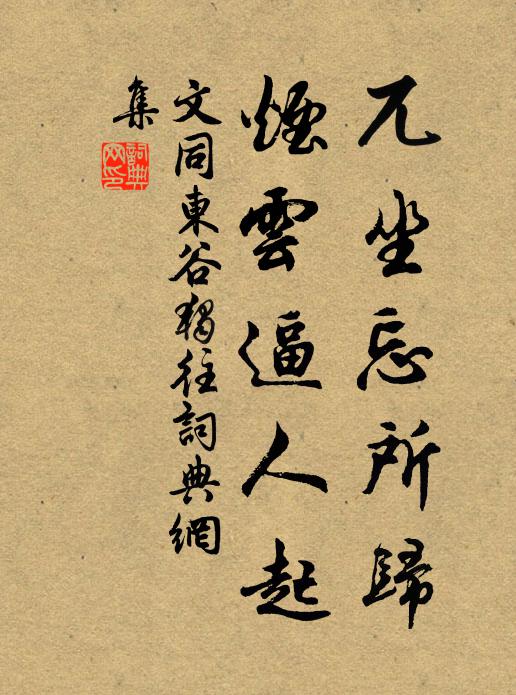 兀坐忘所歸
煙雲逼人起
文同東谷獨往詞典網
集
詞典網印